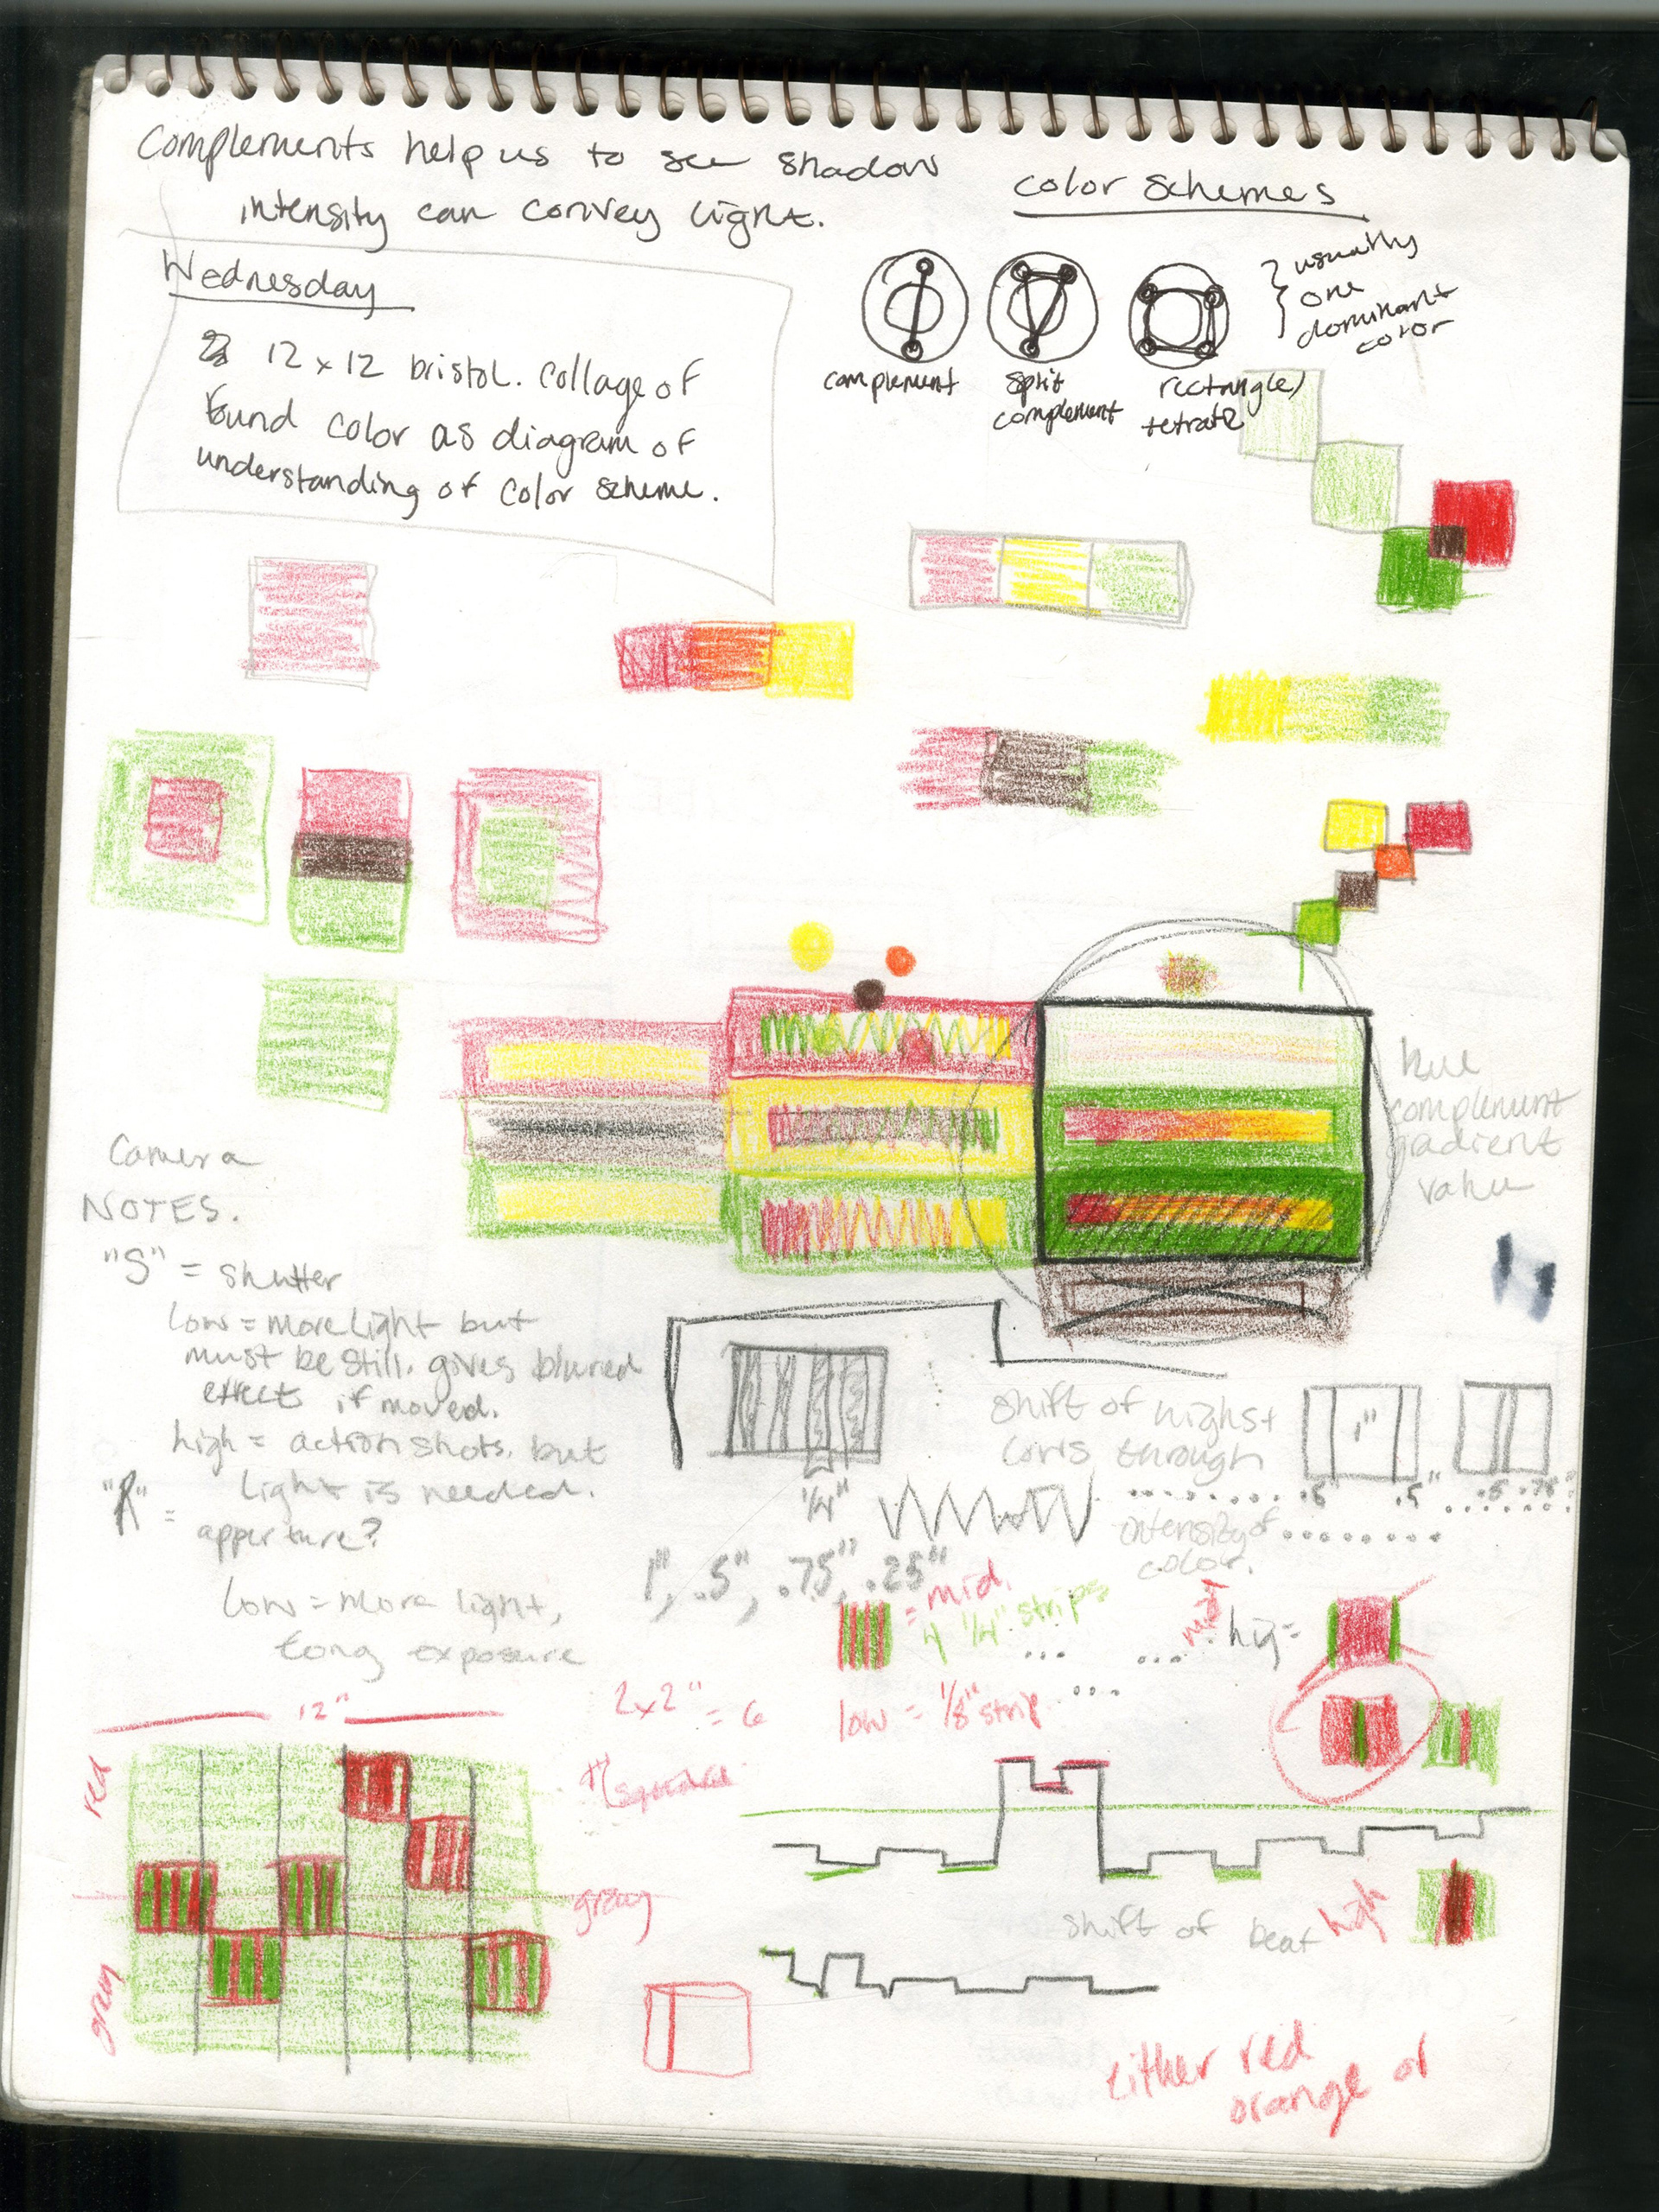 Complements help us to see shadow
intensity can convey light.
color schemes
Wednesday
12 x 12 bristol. collage of
found color as diagram of
understanding of color scheme.
complement
split
complement
rectangle/
usually
one
dominant
color
hue
complement
gradient
value
Camera
NOTES.
"S" = shutter
low = more light but
must be still. gives blured
effects if moved.
high = action shots. but
light is needed.
"A" =
apperture?
low = more light,
long exposure
shift of
through
intensity of
color.
1"
.5"
.5"
.5 .75"
1/4"
1", .5", .75", .25"
= mid.
4 1/4" strips
low = 1/8" strip
2x2" = 6
12"
red
gray
green
shift of beat
high
either red
orange or